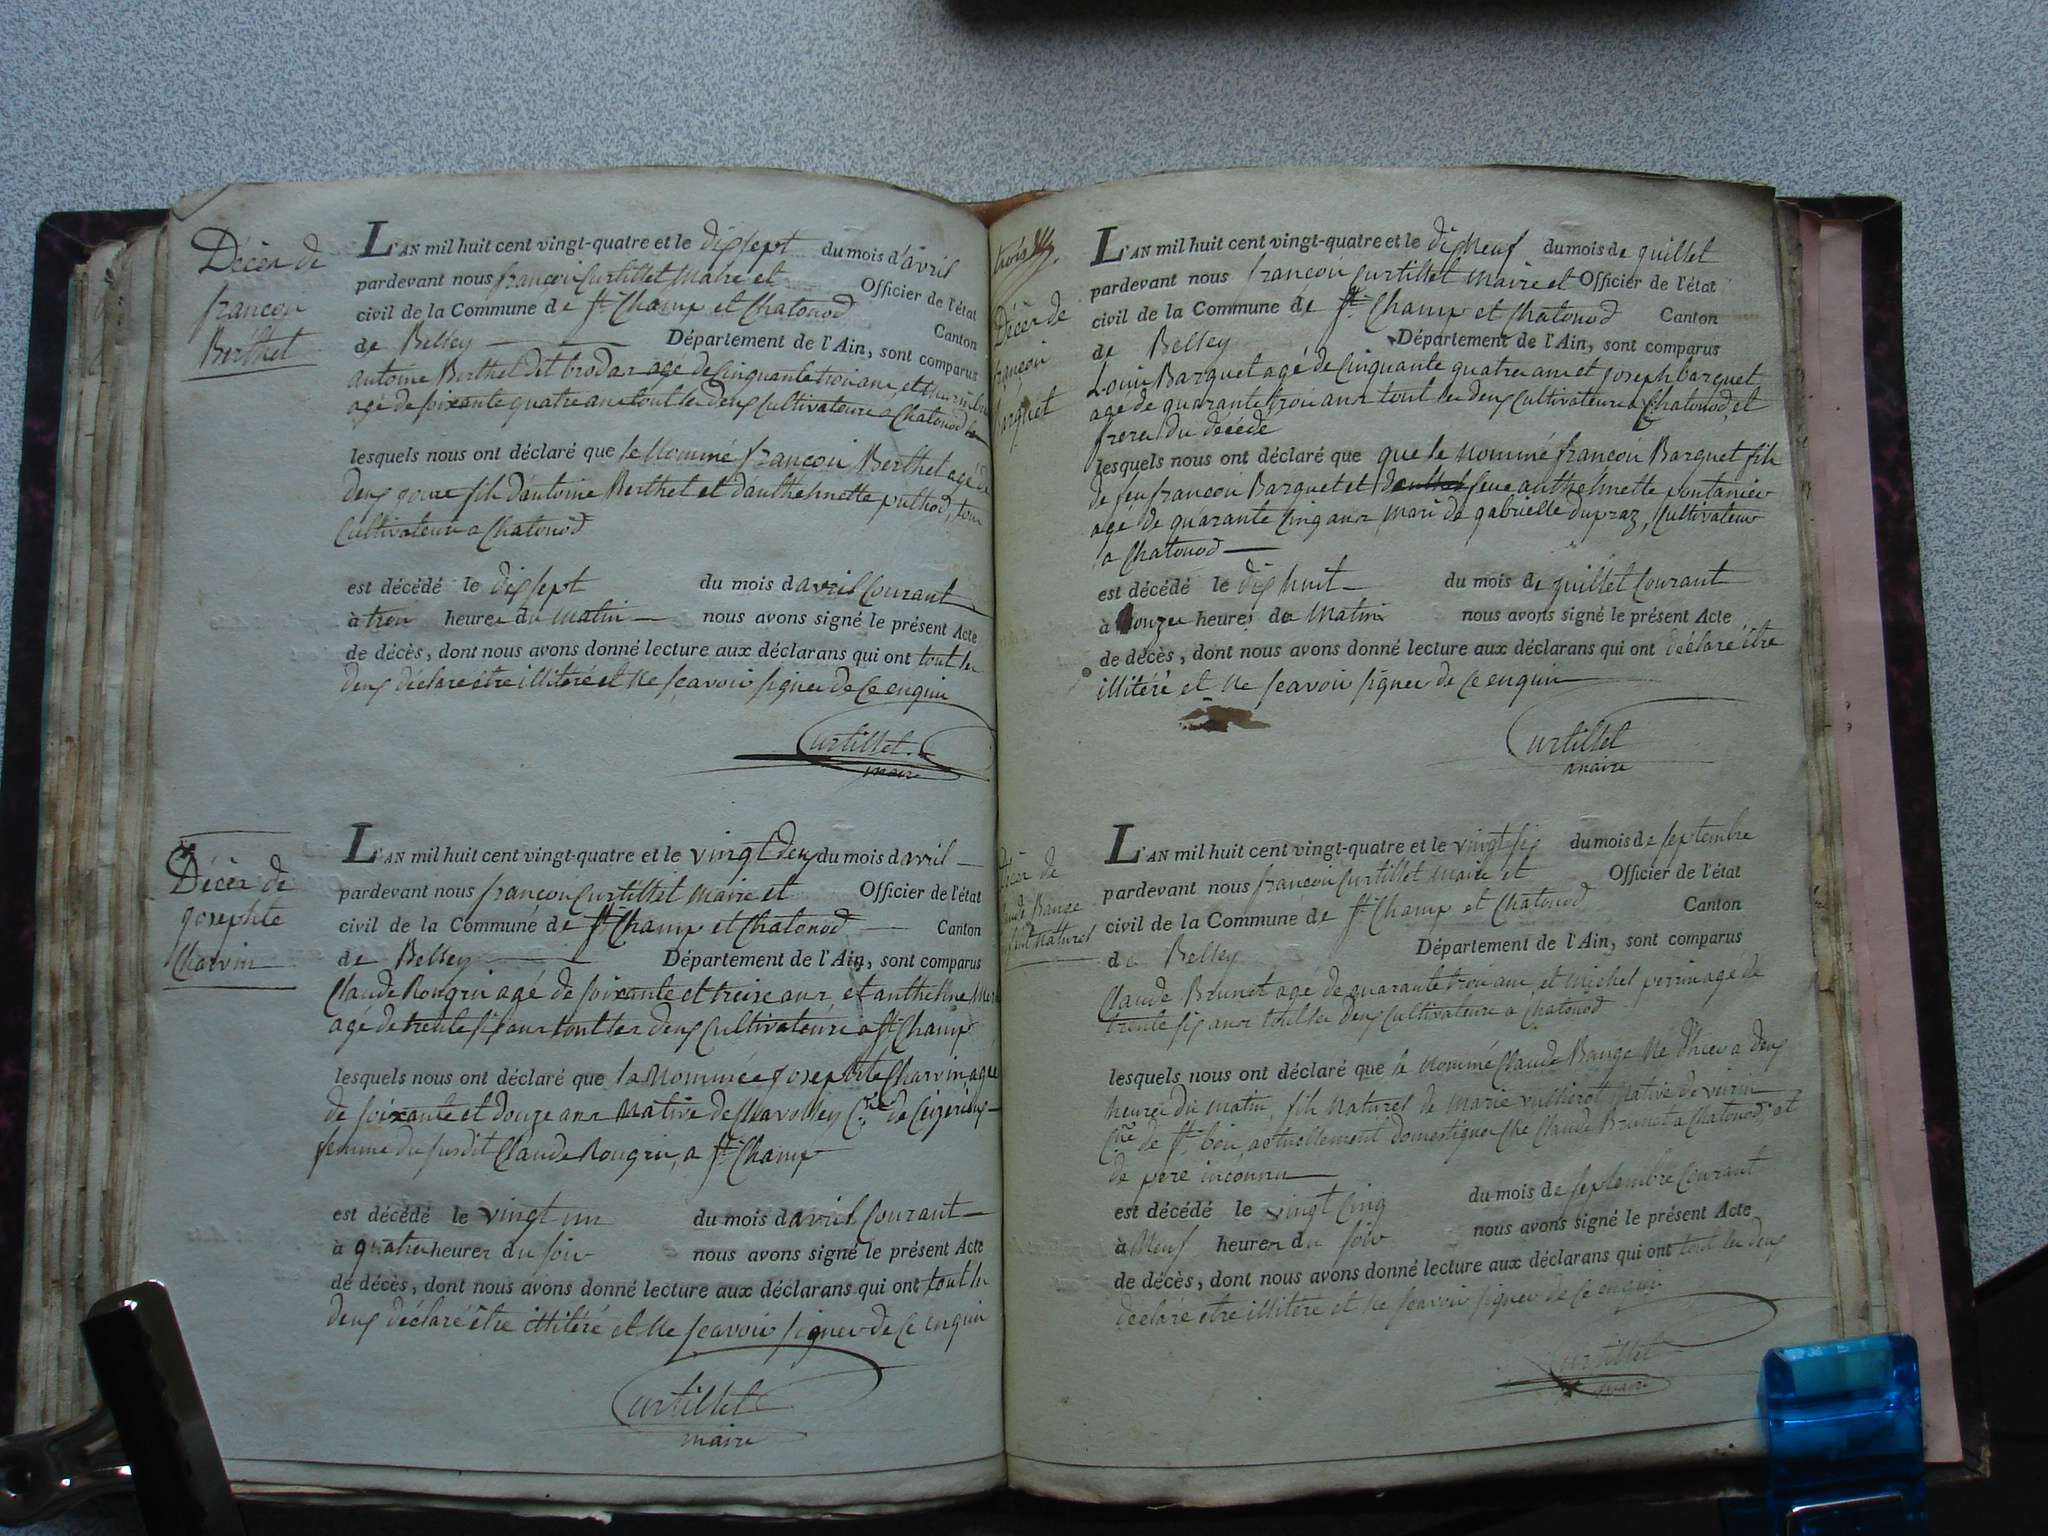 Décès de
françois
Berthet
L'AN mil huit cent vingt-quatre et le dix sept du mois d'avril
pardevant nous françois Curtillet Maire et Officier de l'état
civil de la Commune de St Champ et Chatonod Canton
de Belley Département de l'Ain, sont comparus
antoine Berthet dit brodar agé de Cinquante trois ans, et
agé de soixante quatre ans tout les deux Cultivateurs a Chatonod
lesquels nous ont déclaré que le Nommé françois Berthet agé de
deux jours fils d'antoine Berthet et d'anthelmette puthod, tous
Cultivateurs a Chatonod
est décédé le dix sept du mois d'avril Courant
à trois heures du matin nous avons signé le présent Acte
de décès, dont nous avons donné lecture aux déclarans qui ont tout les
deux déclaré être illitéré et Ne scavoir signer de Ce enquis
Curtillet
maire
Décès de
josephte
Charvin
L'AN mil huit cent vingt-quatre et le vingt deux du mois d'avril
pardevant nous françois Curtillet Maire et Officier de l'état
civil de la Commune de St Champ et Chatonod Canton
de Belley Département de l'Ain, sont comparus
Claude Rougrin agé de soixante et treize ans, et anthelme
agé de trente six ans tout les deux Cultivateurs a St Champ
lesquels nous ont déclaré que la Nommée josephte Charvin, agée
de soixante et douze ans Native de Chavolley Cne de Ceizerieux
femme du susdit Claude Rougrin, a St Champ
est décédé le vingt un du mois d'avril Courant
à quatre heures du soir nous avons signé le présent Acte
de décès, dont nous avons donné lecture aux déclarans qui ont tout les
deux déclaré être illitéré et Ne scavoir signer de Ce enquis
Curtillet
maire
Décès de
françois
barquet
L'AN mil huit cent vingt-quatre et le dix Neuf du mois de juillet
pardevant nous françois Curtillet Maire et Officier de l'état
civil de la Commune de St Champ et Chatonod Canton
de Belley Département de l'Ain, sont comparus
Louis Barquet agé de Cinquante quatre ans et joseph barquet
agé de quarante trois ans tout les deux Cultivateurs a Chatonod, et
freres du décédé
lesquels nous ont déclaré que que le Nommé françois Barquet fils
de feu françois Barquet et feue anthelmette pontanier
agé de quarante Cinq ans mari de gabrielle dupraz, Cultivateur
a Chatonod
est décédé le dix huit du mois de juillet Courant
à onze heures du Matin nous avons signé le présent Acte
de décès, dont nous avons donné lecture aux déclarans qui ont déclaré être
illitéré et Ne scavoir signer de Ce enquis
Curtillet
maire
Décès de
Claude Bange
fils Naturel
L'AN mil huit cent vingt-quatre et le vingt six du mois de septembre
pardevant nous françois Curtillet Maire et Officier de l'état
civil de la Commune de St Champ et Chatonod Canton
de Belley Département de l'Ain, sont comparus
Claude Brunet agé de quarante trois ans et michel perrin agé de
trente six ans tout les deux Cultivateurs a Chatonod
lesquels nous ont déclaré que le Nommé Claude Bange Né d'hier a deux
heures du matin, fils Naturel de Marie Native de virin
Cne de St boin, actuellement domestique Ché Claude Brunet a Chatonod, et
de père inconnu
est décédé le vingt Cinq du mois de septembre Courant
à Neuf heures du soir nous avons signé le présent Acte
de décès, dont nous avons donné lecture aux déclarans qui ont tout les deux
déclaré être illitéré et Ne scavoir signer de Ce enquis
Curtillet
maire